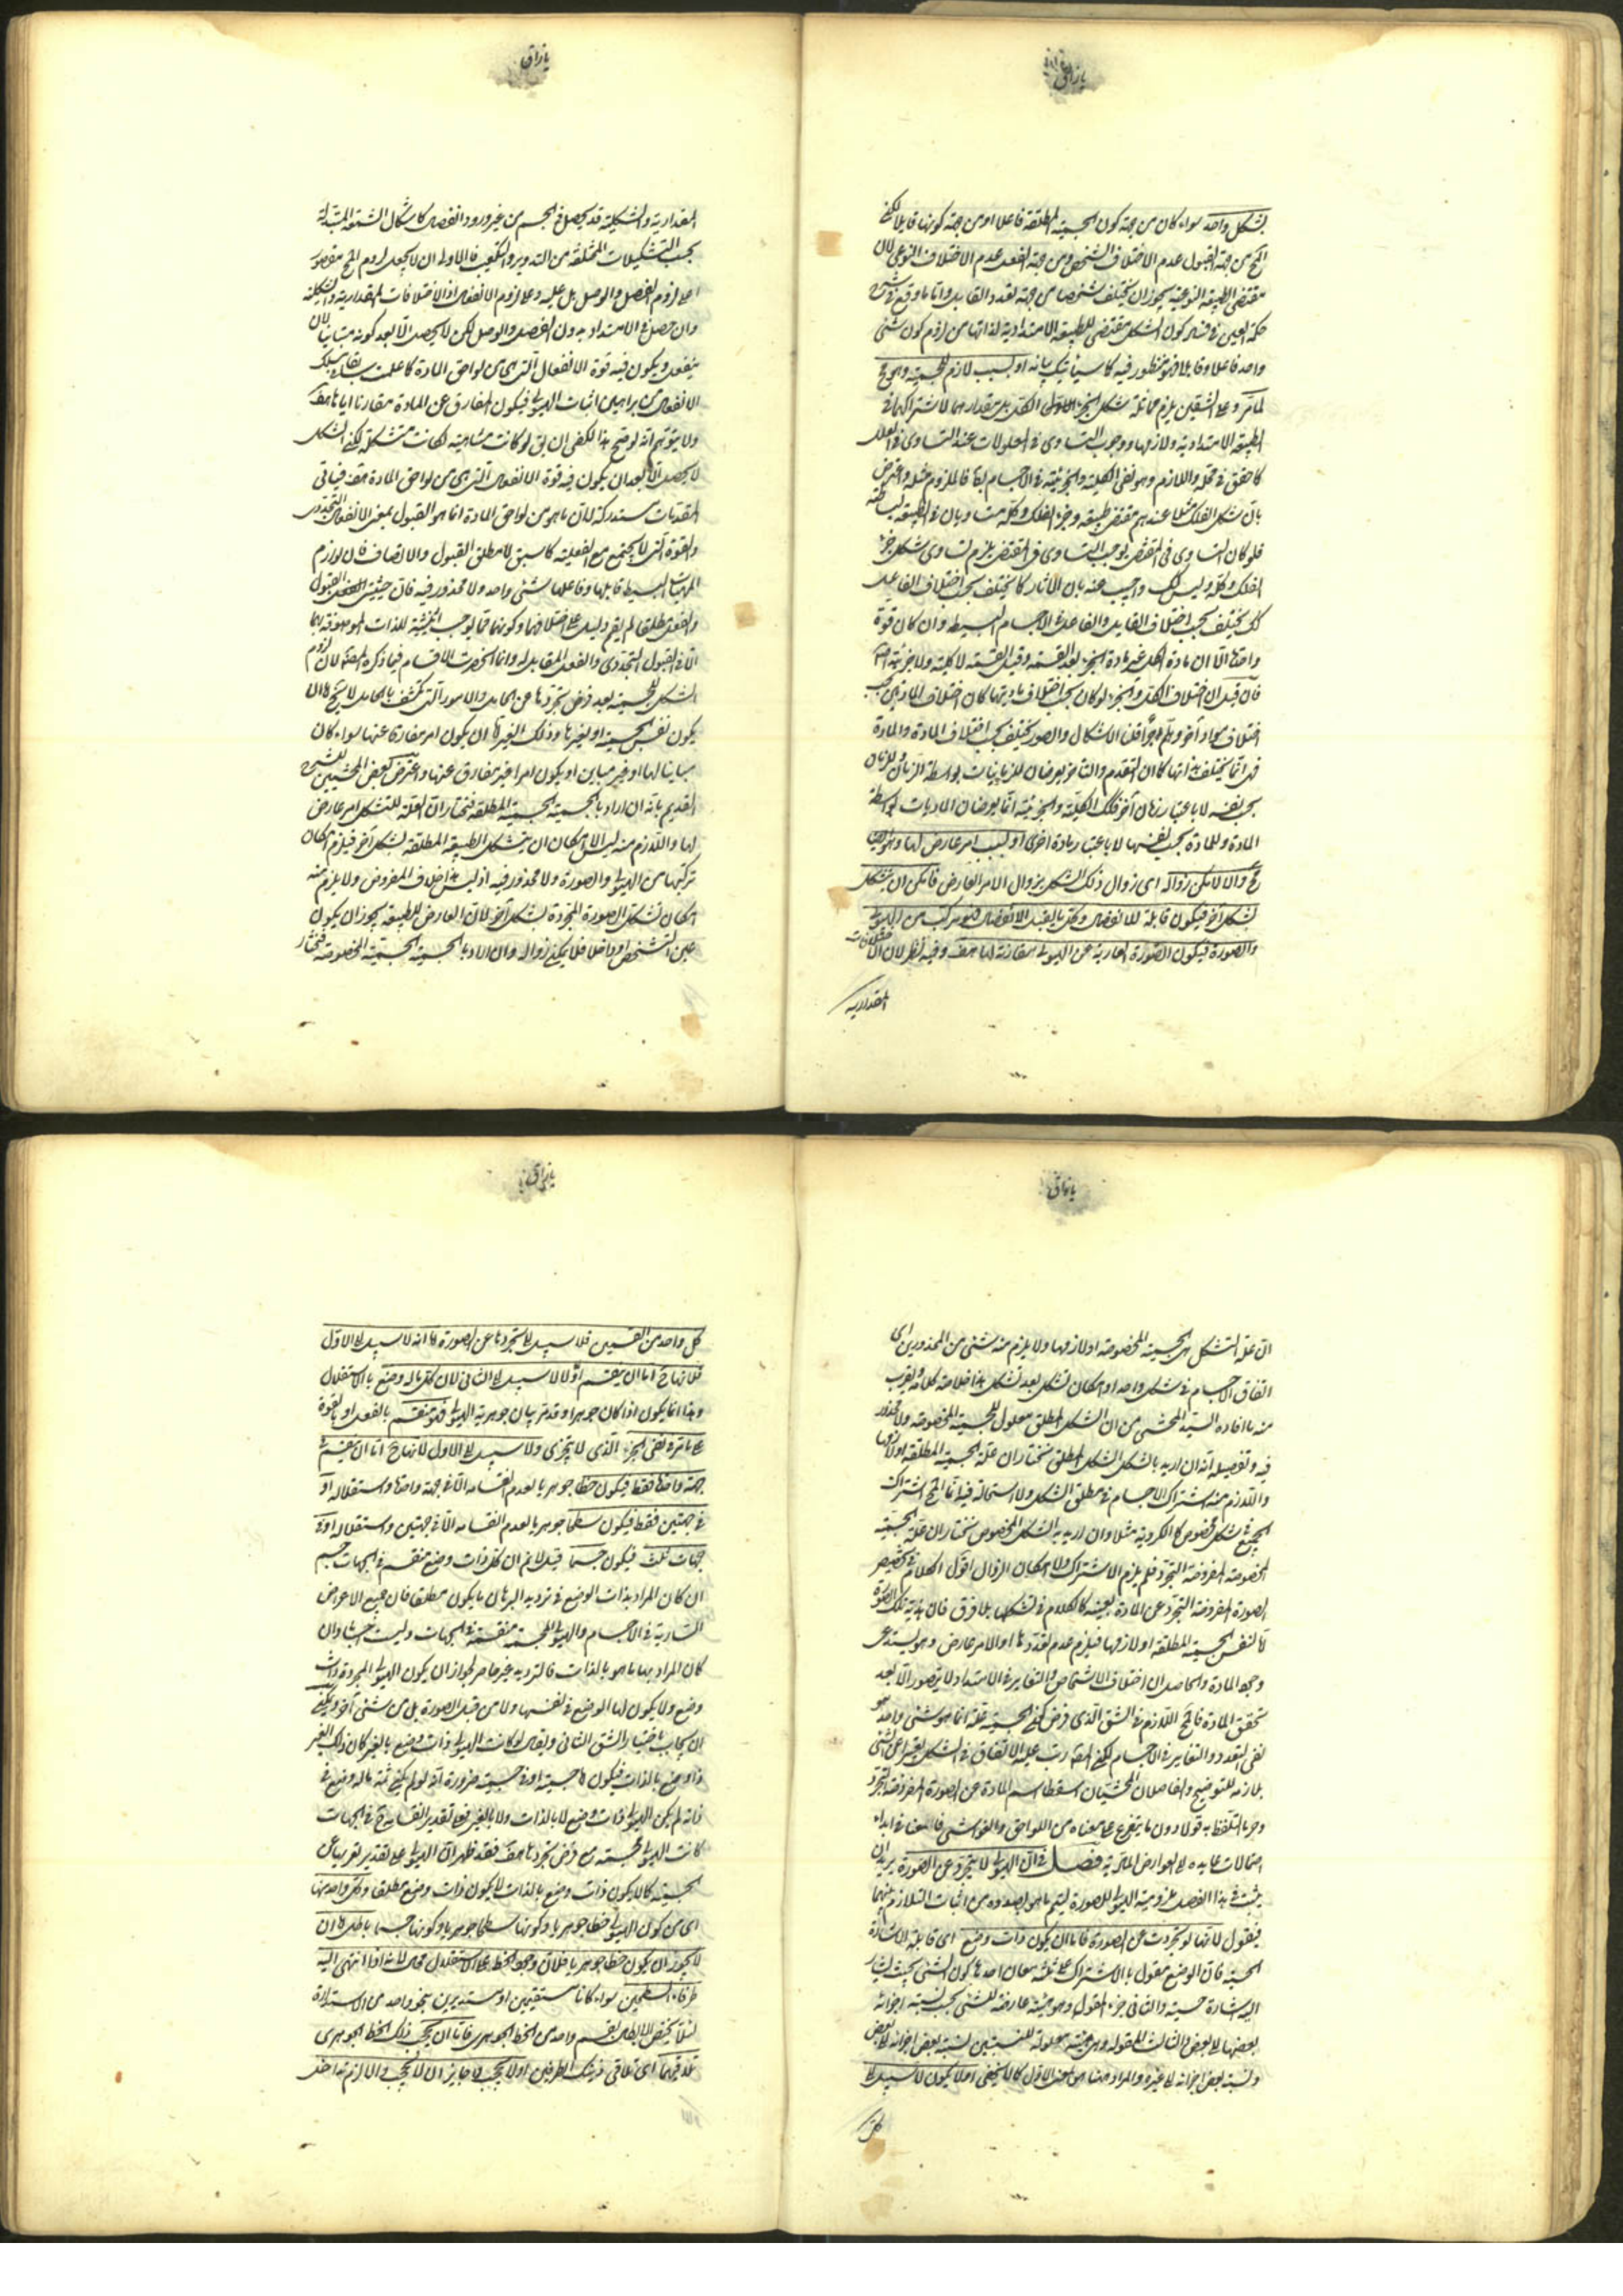 بشكل واحد سواء كان من جهة كون الجسمية المطلقة فاعلا او من جهة كونها قابلا لكن
من جهة القبول عدم الاختلاف الشخصى ومن جهة الفعل عدم الاختلاف النوعى لان
مقتضى الطبيعة النوعية يجوز ان يختلف شخصا من جهة تعدد القابل واما ما وقع فى شرح
حكمة العين فى فساد كون الشكل مقتضى للطبيعة الامتدادية لذاتها من لزوم كون شئ
واحد فاعلا وقابلا فهو منظور فيه كما سيأتيك بيانه او بسبب لازم للجسمية وهو مح
لما مر وعلى الشقين يلزم مماثلة شكل الجزء الكل بل مقدارهما لاشتراكهما فى
الطبيعة الامتدادية ولازمها ووجوب التساوى فى المعلولات عند التساوى فى العلل
كما حقق فى محله واللازم وهو نفى الكلية والجزئية فى الاجسام بط فالملزوم مثله واعترض
بان شكل الفلك مثلا عندهم مقتضى طبيعته وجزء الفلك وكله متساويان فى الطبيعة
فلو كان التساوى فى المقتضى يوجب التساوى فى المقتضى يلزم تساوى شكل جزء
الفلك وكله وليس كك واجيب عنه بان الاثار كما يختلف بحسب اختلاف الفاعل
كك يختلف بحسب اختلاف القابل والفاعل فى الاجسام البسيطة وان كان قوة
واحدة الا ان مادة الكل غير مادة الجزء بعد القسمة وقبل القسمة لا كلية ولا جزئية
فان قيل ان اختلاف الكل والجزء لو كان بحسب اختلاف ماديتهما كان اختلاف المادتين بحسب
اختلاف مواد أخر وهلم جرا قلنا الاشكال والصور يختلف بحسب اختلاف المادة والمادة
فهى انما يختلف بذاتها كما ان التقدم والتاخر يعرضان للزمانيات بواسطة الزمان وللزمان
بحسب نفسه لا باعتبار زمان آخر فكك الكلية والجزئية انما يعرضان الماديات بواسطة
المادة وللمادة بحسب نفسها لا باعتبار مادة اخرى او بسبب امر عارض لها وهو ايض
مح والا لامكن زواله اى زوال ذلك الشكل بزوال الامر العارض فامكن ان يتشكل
بشكل آخر فيكون قابلة للانفصال وكل ما يقبل الانفصال فهو مركب من الهيولى
والصورة فيكون الصورة العارية عن الهيولى مقارنة لها هف وفيه نظر لان الاختلافات
المقدارية
المقدارية والشكلية قد يحصل فى الجسم من غير ورود انفصال كاشكال الشمعة المتبدلة
بحسب التشكيلات المختلفة من التدوير والتكعيب فالاولى ان لا يجعل لزوم المح مقصور
على لزوم الفصل والوصل بل عليه وعلى لزوم الانفعال اذ الاختلافات المقدارية والشكلية
وان حصل فى الامتداد بدون الفصل والوصل لكن لا يحصل الا بعد كونه متاتيا لان
ينفعل ويكون فيه قوة الانفعال التى هى من لواحق المادة كما علمت
الانفعال من براهين اثبات الهيولى فيكون المفارق عن المادة مقارنا اياها هف
ولا يتوهم انه لو صح هذا لكفى ان يق لو كانت متناهية لكانت متشكلة لكن الشكل
لا يحصل الا بعد ان يكون فيه قوة الانفعال التى هى من لواحق المادة هف فباقى
المقدمات مستدركة لان ما هو من لواحق المادة انما هو القبول بمعنى الانفعال التجددى
والقوة التى لا يجتمع مع الفعلية كما سبق لا مطلق القبول والاتصاف فان لوازم
المهيات البسيطة قابلها وفاعلها شئ واحد ولا محذور فيه فان حيثيتى القبول
والفعل مطلقا لم يقم دليل على اختلافهما وكونهما مما يوجب اثنينية للذات الموصوفة بهما
انما فى القبول التجددى والفعل المقابل له وانما انحصرت الاقسام فيما ذكره المصـ لان لزوم
الشكل للجسمية بعد فرض تجردها عن المادة والامور التى يكتنف بالمادة لا يخ اما ان
يكون نفس الجسمية او بغيرها وذلك الغير اما ان يكون امر مفارقا عنها سواء كان
مباينا لها او غير مباين او يكون امرا غير مفارق عنها واعترض بعض المحشيين للشرح
القديم بانه ان اراد بالجسمية الجسمية المطلقة نختار ان العلة للتشكل امر عارض
لها واللازم منه ليس الا امكان ان يتشكل الطبيعة المطلقة بشكل آخر فيلزم امكان
تركبها من الهيولى والصورة ولا محذور فيه اذ ليس هذا خلاف المفروض ولا يلزم منه
امكان تشكل الصورة المجردة بشكل آخر لان العارض للطبيعة يجوز ان يكون
عين التشخص او داخلا فلا يمكن زواله وان اراد بالجسمية الجسمية المخصوصة فنختار
ان علة التشكل هى الجسمية المخصوصة او لازمها ولا يلزم منه شئ من المحذورين اى
اتفاق الاجسام فى شكل واحد او امكان تشكل بعد تشكل هذا خلاصة كلامه ويقرب
منه ما افاده السيد المحشى من ان الشكل المطلق معلول للجسمية المخصوصة ولا محذور
فيه وتفصيله انه ان اريد بالشكل الشكل المطلق نختار ان علته الجسمية المطلقة او لازمها
واللازم منه اشتراك الاجسام فى مطلق الشكل ولا استحالة فيه انما المح اشتراك
الجميع فى شكل مخصوص كالكروية مثلا وان اريد به الشكل المخصوص نختار ان علته الجسمية
المخصوصة المفروضة التجرد فلم يلزم الاشتراك ولا امكان الزوال اقول الكلام فى تخصيص
الصورة المفروضة التجرد عن المادة بعينه كالكلام فى تشكلها بلا فرق فان هذية تلك الصورة
اما لنفس الجسمية المطلقة او لازمها فيلزم عدم تعددها او الامر عارض وهو يستدعى
وجود المادة والحاصل ان اختلاف الاشخاص والتغاير فى الامتداد لا يتصور الا بعد
تحقق المادة فالمح اللازم فى الشق الذى فرض كون الجسمية علة انما هو شئ واحد هو
نفى التعدد والتغاير فى الاجسام لكن المصـ رتب عليه الاتفاق فى الشكل تعبيرا عن الشئ
بلازمه للتوضيح والفاضلان المحشيان اسقطا اسم المادة عن الصورة المفروضة التجرد
وجرد التلفظ به قولا دون ما يتفرع على معناه من اللواحق والغواشى فامعنا فى ابداء
احتمالات عايدة الى العوارض المادية فصل فى ان الهيولى لا يتجرد عن الصورة يريد ان
يثبت فى هذا الفصل ملزومية الهيولى للصورة ليتم ما هو بصدده من اثبات التلازم بينهما
فيقول لانها لو تجردت عن الصورة فاما ان يكون ذات وضع اى قابلة للاشارة
الحسية فان الوضع مقول بالاشتراك على ثلثة معان احدها كون الشئ بحيث يشار
اليه اشارة حسية والثانى جزء المقولة وهو هيئة عارضة للشئ بحسب نسبة اجزائه
بعضها الى بعض والثالث المقولة وهى هيئة معلولة للنسبتين نسبة بعض اجزائه الى بعض
ونسبة بعض اجزائه الى غيره والمراد ههنا هو المعنى الاول كما لا يخفى او لا يكون لا سبيل الى
كل
كل واحد من القسمين فلا سبيل الى تجردها عن الصورة اما انه لا سبيل الى الاول
فلانها ح اما ان ينقسم اولا لا سبيل الى الثانى لان كل ما له وضع بالاستقلال
وهذا انما يكون اذا كان جوهرا وقد مر بيان جوهرية الهيولى فهو منقسم بالفعل او بالقوة
على ما مر فى نفى الجزء الذى لا يتجزى ولا سبيل الى الاول لانها ح اما ان ينقسم فى
جهة واحدة فقط فيكون خطا جوهريا لعدم انقسامه الا فى جهة واحدة واستقلاله او
فى جهتين فقط فيكون سطحا جوهريا لعدم انقسامه الا فى جهتين واستقلاله او فى
جهات ثلث فيكون جسما قيل لا نم ان كل ذات وضع منقسم فى الجهات جسم
ان كان المراد بذات الوضع فى ترديد البرهان ما يكون مطلقا فان جميع الاعراض
السارية فى الاجسام والهيولى المجسمة منقسمة فى الجهات وليست اجساما وان
كان المراد بها ما هو بالذات فالترديد غير حاصر لجواز ان يكون الهيولى المجردة ذات
وضع ولا يكون لها الوضع فى نفسها ولا من قبل الصورة بل من شئ آخر ويمكن
ان يجاب باختيار الشق الثانى ويقال لو كانت الهيولى ذات وضع بالغير كان ذلك الغير
ذا وضع بالذات فيكون اما جسمية او فى جسمية ضرورة انه لو لم يكن ثمه ما له وضع فى
ذاته لم يكن الهيولى ذات وضع لا بالذات ولا بالغير فعلى تقدير انقسامه فى الجهات
كانت الهيولى المجسمة مع فرض تجردها هف فقد ظهر ان الهيولى على تقدير تعريها عن
الجسمية كما لا يكون ذات وضع بالذات لا يكون ذات وضع مطلقا وكل واحد منها
اى من كون الهيولى خطا جوهريا وكونها سطحا جوهريا وكونها جسما باطل اما انه
لا يجوز ان يكون خطا جوهريا فلان وجود الخط على الاستقلال مح لانه اذا انتهى اليه
طرفا السطحين سواء كانا مستقيمين او مستديرين بنحو واحد من الاستدارة
لئلا يختص الابطال بقسم واحد من الخط الجوهرى فاما ان يحجب ذلك الخط الجوهرى
تلاقيهما اى تلاقى ذينك الطرفين او لا يحجب لا جايز ان لا يحجب والا لزم تداخل